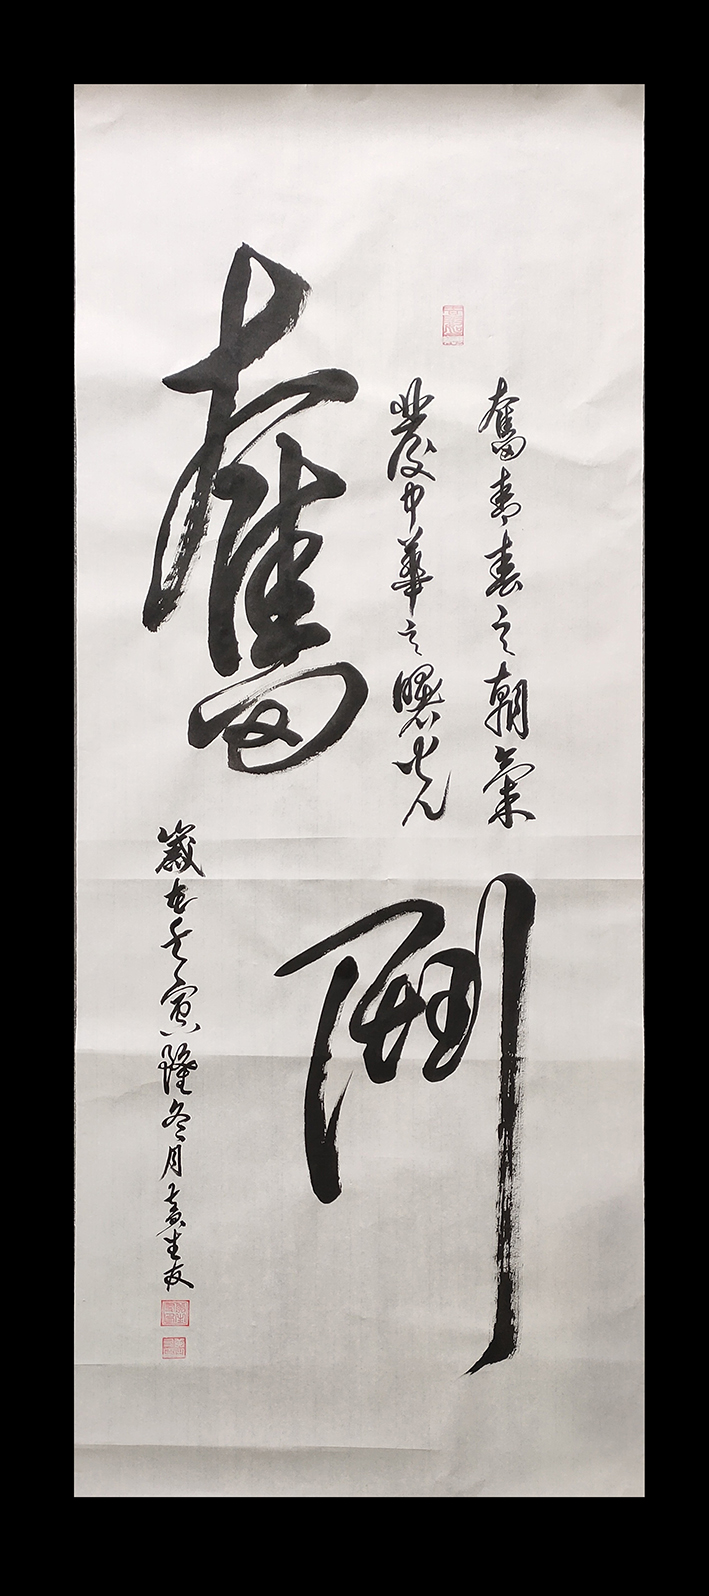 奮鬪
奮青春之朝氣
發中華之曙光
歲在壬寅隆冬月黃生友